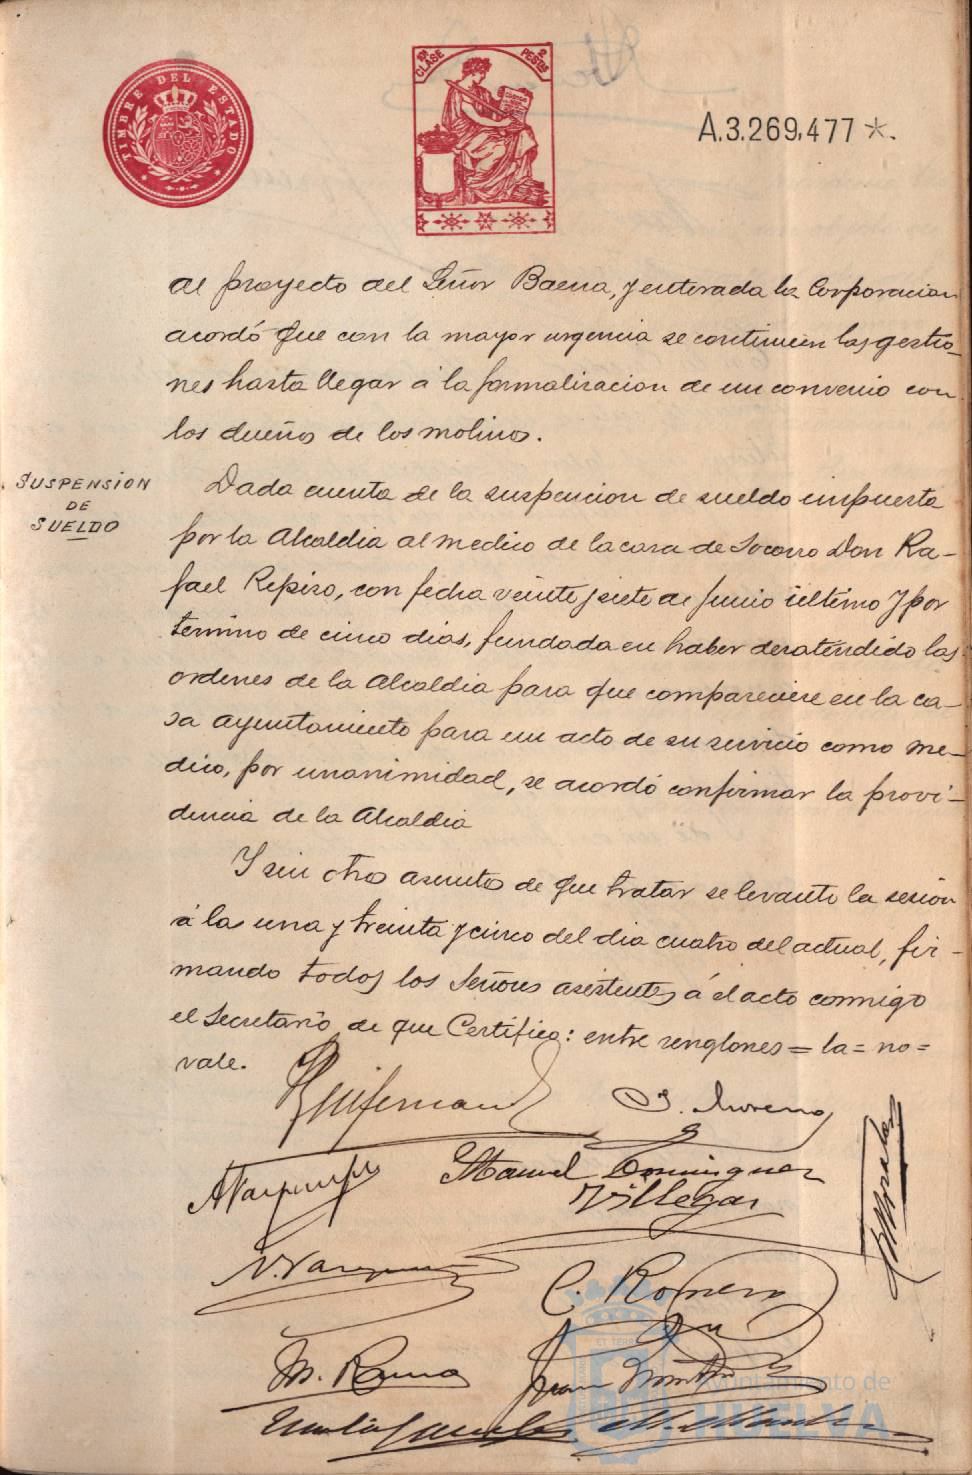 TIMBRE DEL ESTADO
CLASE
2 PESETAS
A.3.269.477 *.
al proyecto del Señor Baena, y enterada la Corporacion
acordó que con la mayor urgencia se continuen las gestio-
nes hasta llegar á la formalizacion de un convenio con
los dueños de los molinos.
SUSPENSION
DE
SUELDO
Dada cuenta de la suspencion de sueldo impuesta
por la Alcaldia al medico de la casa de Socorro Don Ra-
fael Repiso, con fecha veinte y siete de Junio último y por
termino de cinco dias, fundada en haber desatendido las
ordenes de la Alcaldia para que compareciere en la ca-
sa ayuntamiento para un acto de su servicio como me-
dico, por unanimidad, se acordó confirmar la provi-
dencia de la Alcaldia
Y sin otros asuntos de que tratar se levanto la sesion
á las una y treinta y cinco del dia cuatro del actual, fir-
mando todos los Señores asistentes á el acto conmigo
el Secretario de que Certifico: entre renglones = la = no =
vale.
J. Moreno
Manuel Dominguez
Villegas
Morales
A Vazquez
N. Vazquez
C. Romero
Juan
Ayuntamiento de
HUELVA